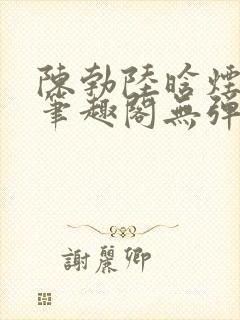 陳勃陸晗煙
筆趣閣無彈
謝麗卿